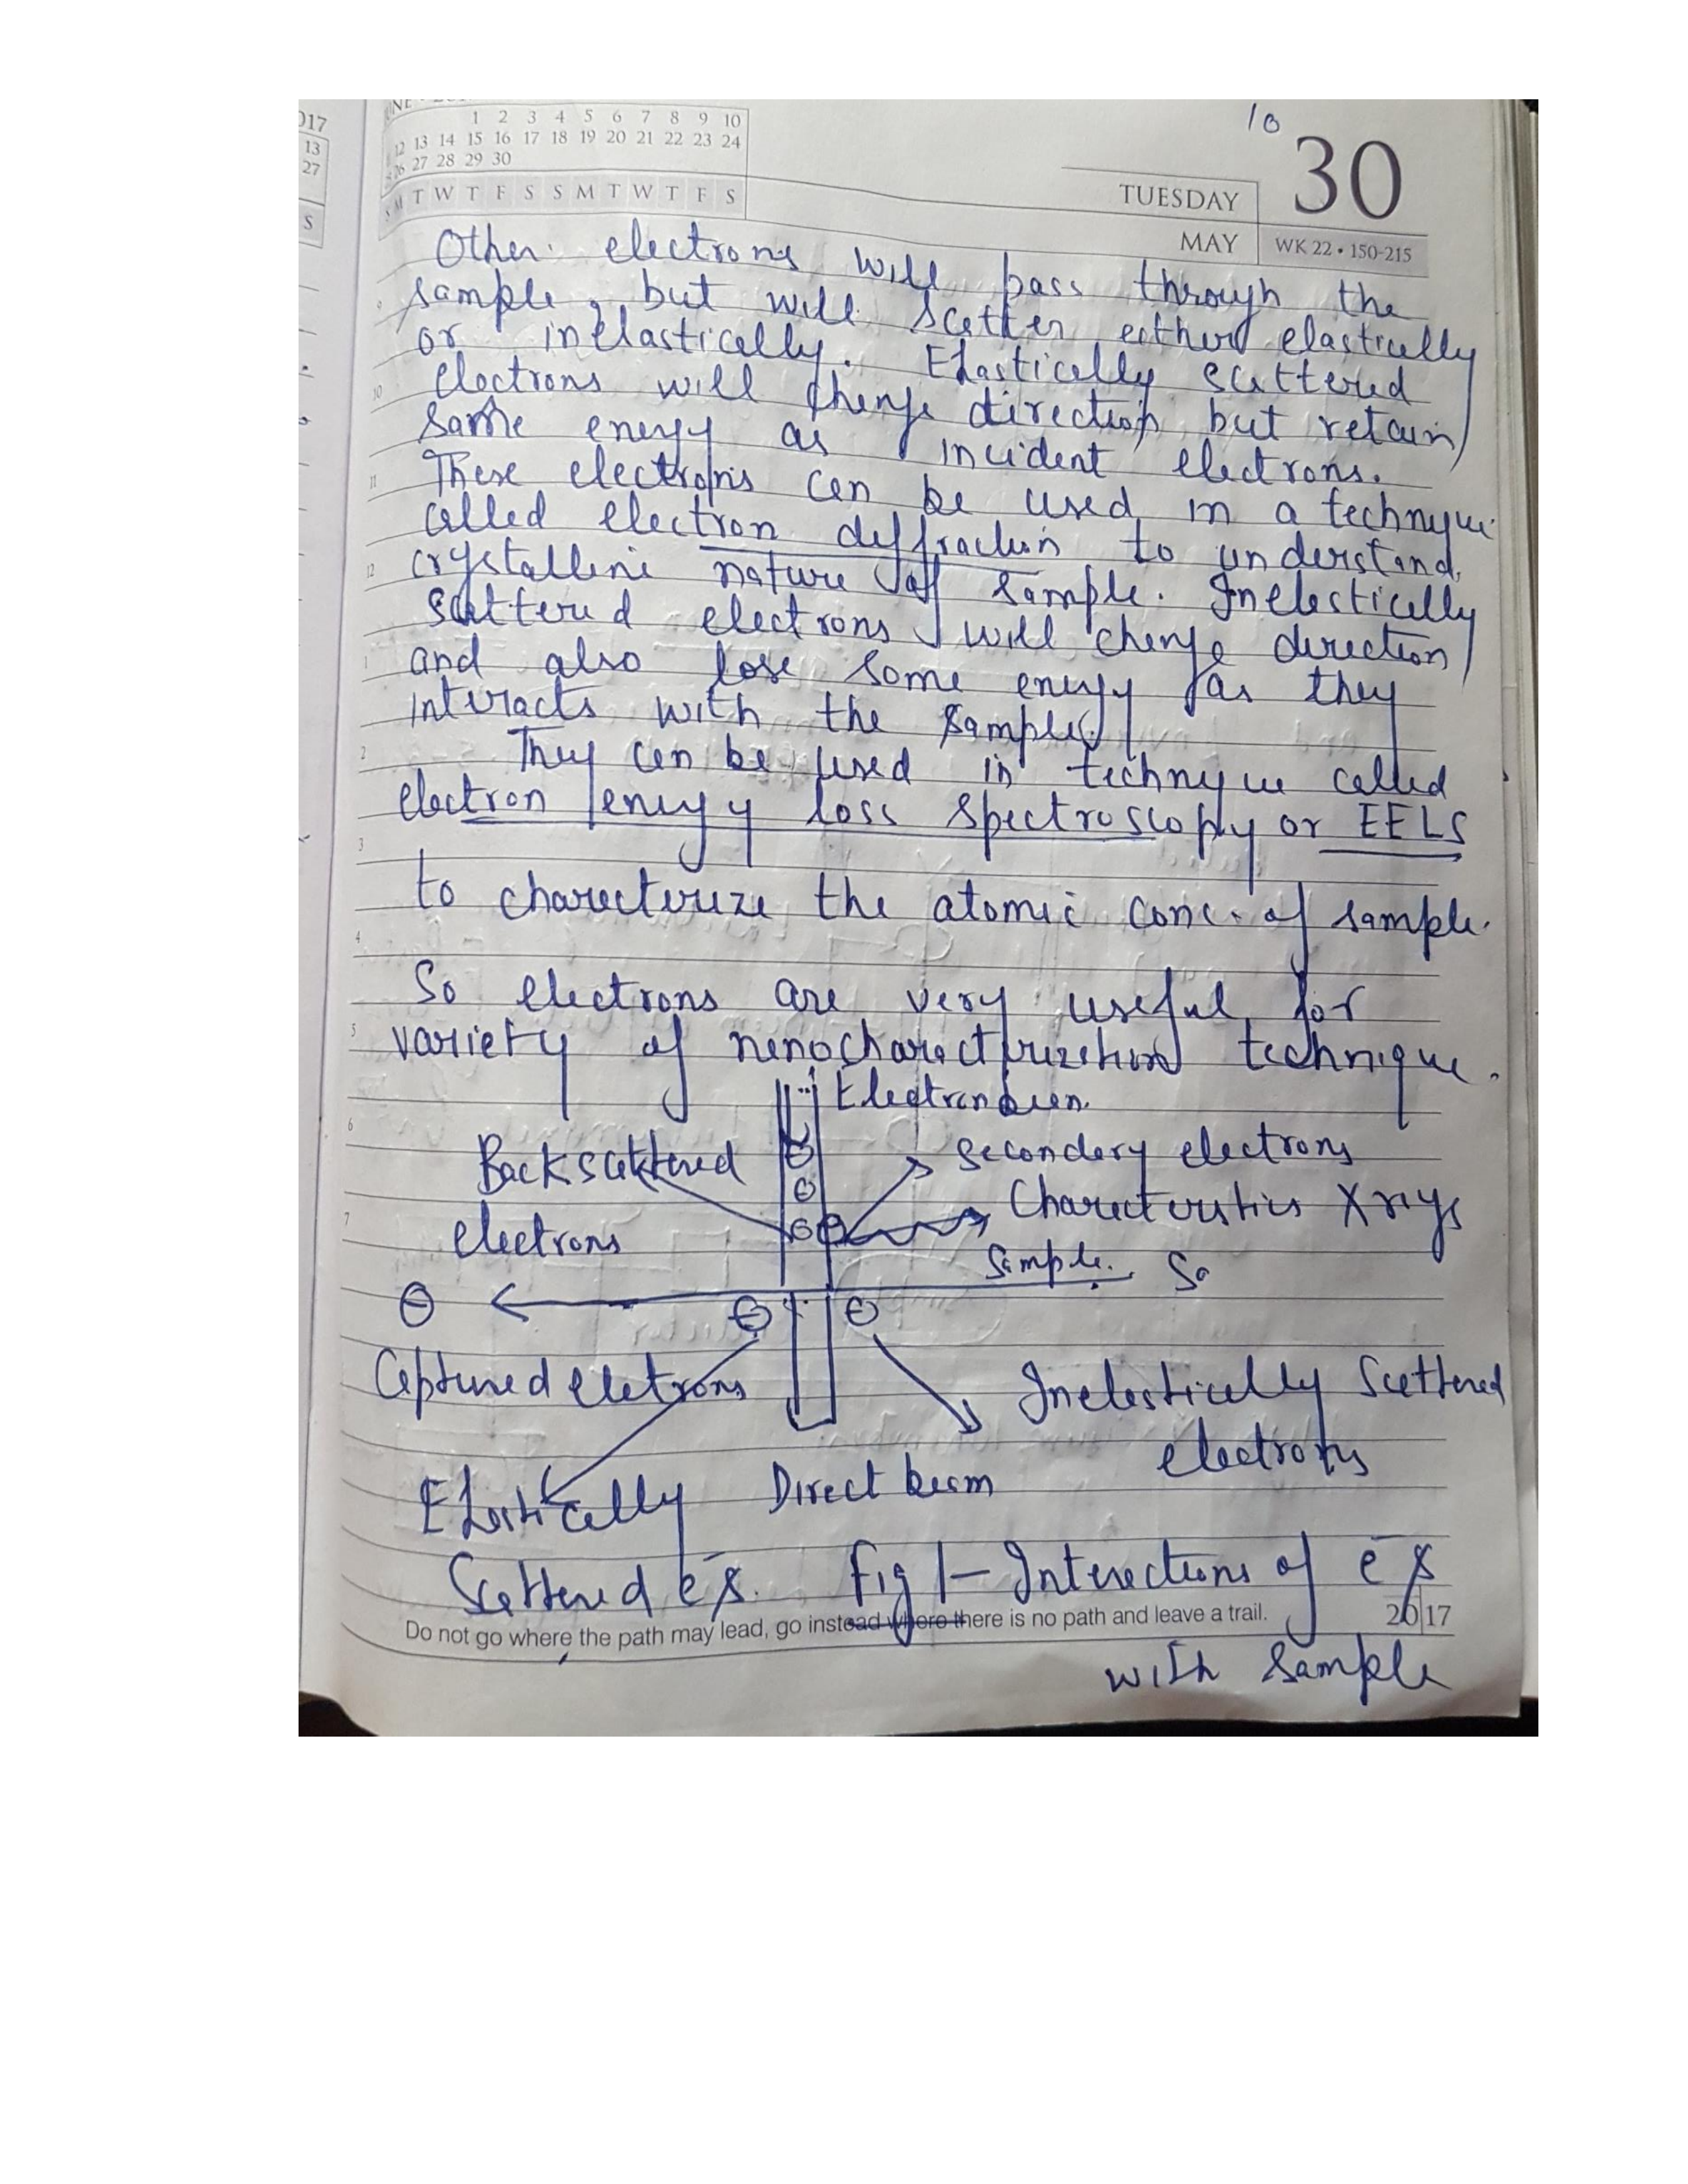 1 2 3 4 5 6 7 8 9 10
12 13 14 15 16 17 18 19 20 21 22 23 24
26 27 28 29 30
S M T W T F S S M T W T F S
017
13
27
S
10
30
TUESDAY
MAY
WK 22 • 150-215
Other electrons will pass through the
sample, but will scatter either elastically
or inelastically. Elastically scattered
electrons will change direction but retain
same energy as incident electrons.
These electrons can be used in a technique
called electron diffraction to understand
crystalline nature of sample. Inelastically
scattered electrons will change direction
and also lose some energy as they
interacts with the sample.
They can be used in technique called
electron energy loss spectroscopy or EELS
to charecterize the atomic conc. of sample.
So electrons are very useful for
variety of nanocharacterization technique.
Electron beam
Backscattered
electrons
Secondary electrons
Characteristics X rays
Sample. Sa
Captured eletrons
Inelastically Scattered
electrons
Elastically
Scattered e⁻s.
Direct beam
Fig 1 – Interactions of e⁻s
with sample
Do not go where the path may lead, go instead where there is no path and leave a trail.
2017